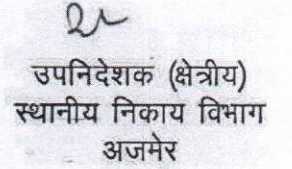 उपनिदेशक (क्षेत्रीय)
स्थानीय निकाय विभाग
अजमेर